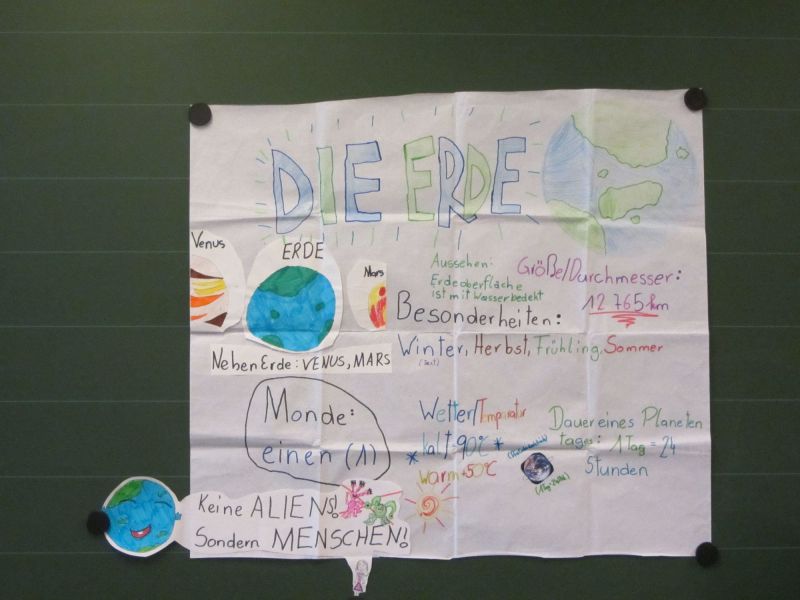 DIE ERDE
Venus
ERDE
Mars
Neben Erde: VENUS, MARS
Aussehen:
Erdeoberfläche
ist mit Wasser bedekt
Größe/Durchmesser:
12 765 km
Besonderheiten:
Winter, Herbst, Frühling, Sommer
Monde:
einen (1)
Wetter/Temperatur
kalt=-90°C
warm+50°C
Dauer eines Planeten
tages: 1 Tag = 24
Stunden
Keine ALIENS!
Sondern MENSCHEN!